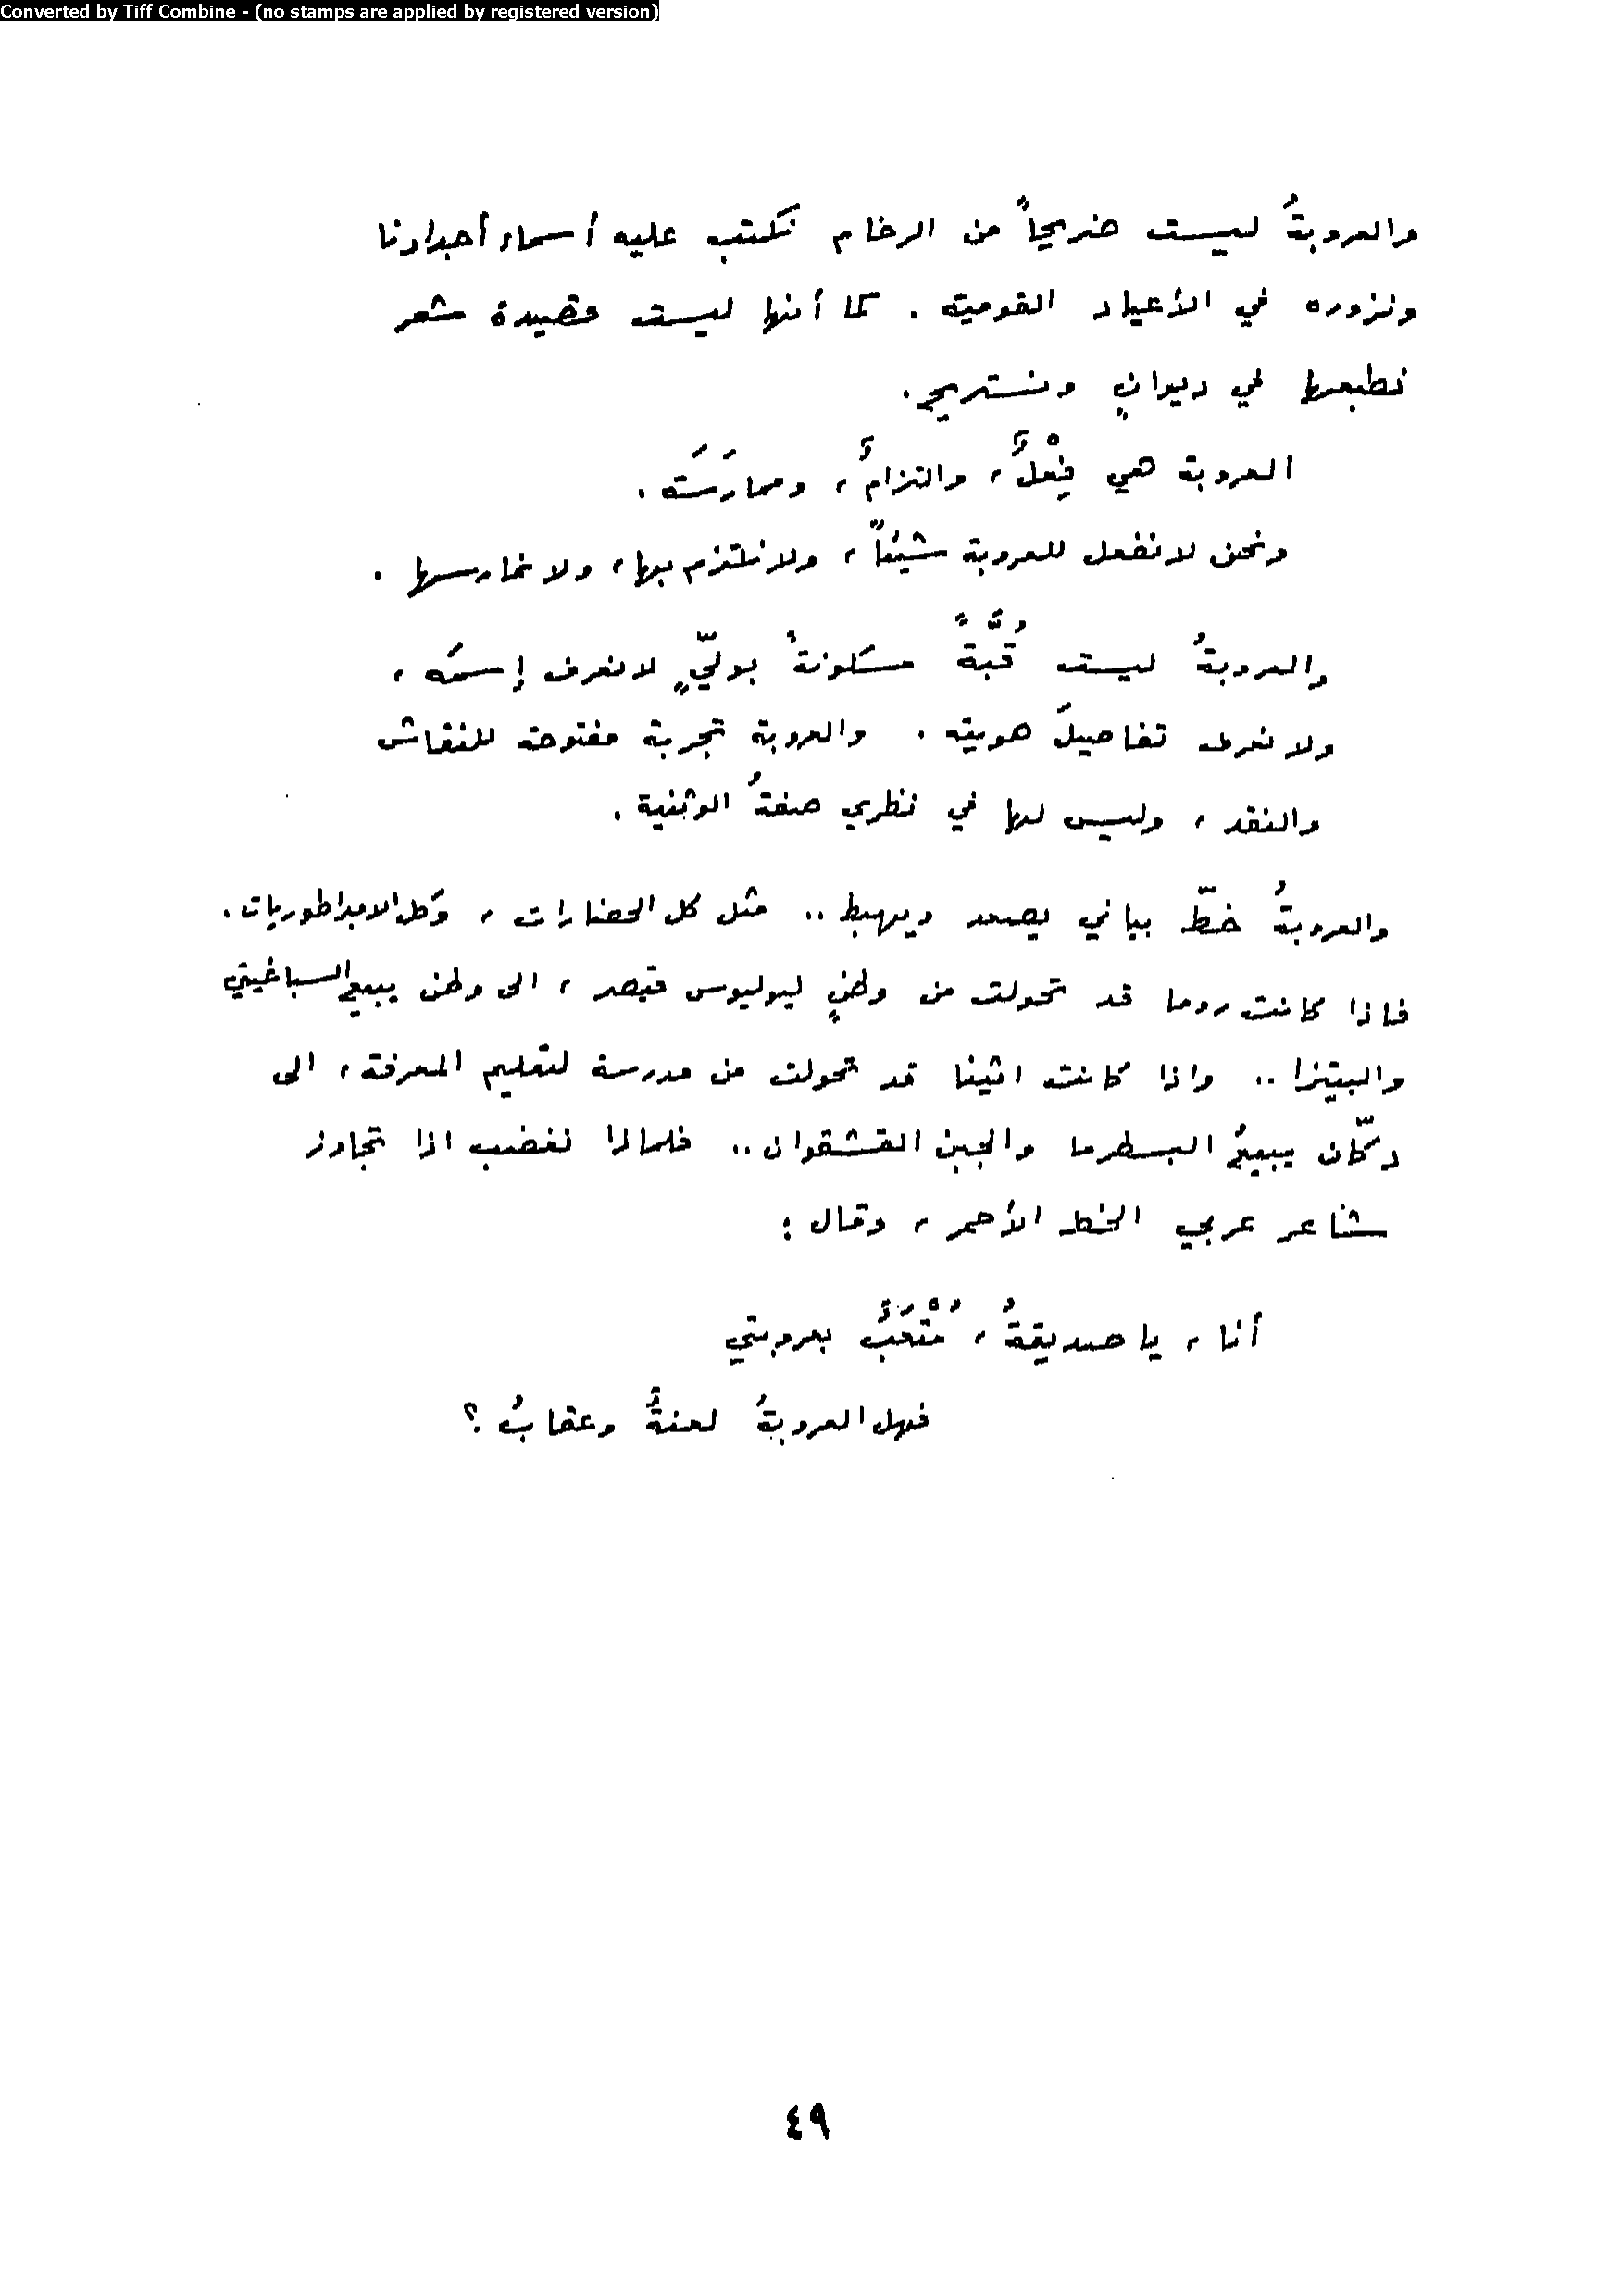 Converted by Tiff Combine - (no stamps are applied by registered version)
والعروبةُ ليست ضريحاً من الرخام نكتب عليه أسماء أجدادنا
ونزوره في الأعياد القومية . كما أنها ليست قصيدة شعر
نطبعها في ديوانٍ ونستريح .
العروبة هي فِعْلٌ ، والتزامٌ ، وممارَسَة .
ونحن لا نفعل للعروبة شيئاً ، ولا نلتزم بها ، ولا نمارسها .
والعروبةُ ليست قُبَّةً مسكونةً بوليٍّ لا نعرف إسمَه ،
ولا نعرف تفاصيلَ هويته . والعروبة تجربة مفتوحة للنقاش
والنقد ، وليس لها في نظري صفةُ الوثنية .
والعروبةُ خطّ بياني يصعد ويهبط .. مثل كل الحضارات ، وكل الامبراطوريات .
فاذا كانت روما قد تحولت من وطنٍ ليوليوس قيصر ، الى وطن يبيع السباغيتي
والبيتزا .. واذا كانت اثينا قد تحولت من مدرسة لتعليم المعرفة ، الى
دكّان يبيعُ البسطرما والجبن القشقوان .. فلماذا نغضب اذا تجاوز
شاعر عربي الخط الأحمر ، وقال :
أنا ، يا صديقةُ ، مُتْعَبٌ بعروبتي
فهل العروبةُ لعنةٌ وعقابُ ؟
٤٩